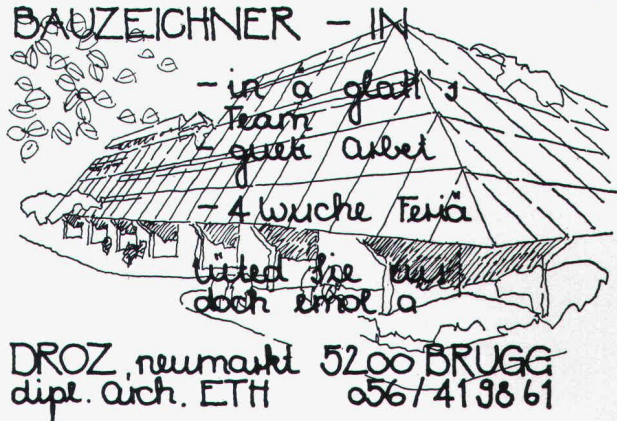 BAUZEICHNER - IN
- in ä glatt's
Team
- gueti Arbet
- 4 wuche Feriä
lüted Sie eus
doch emol a
DROZ, neumarkt 5200 BRUGG
dipl. arch. ETH 056/41 98 61